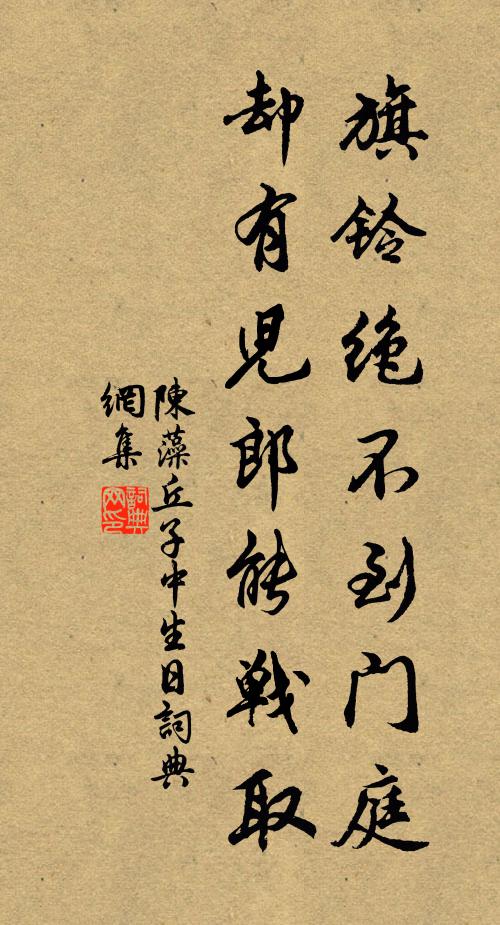 旗鈴绝不到门庭
却有児郎能戦取
陳藻丘子中生日詞典
網集
詞典
网印